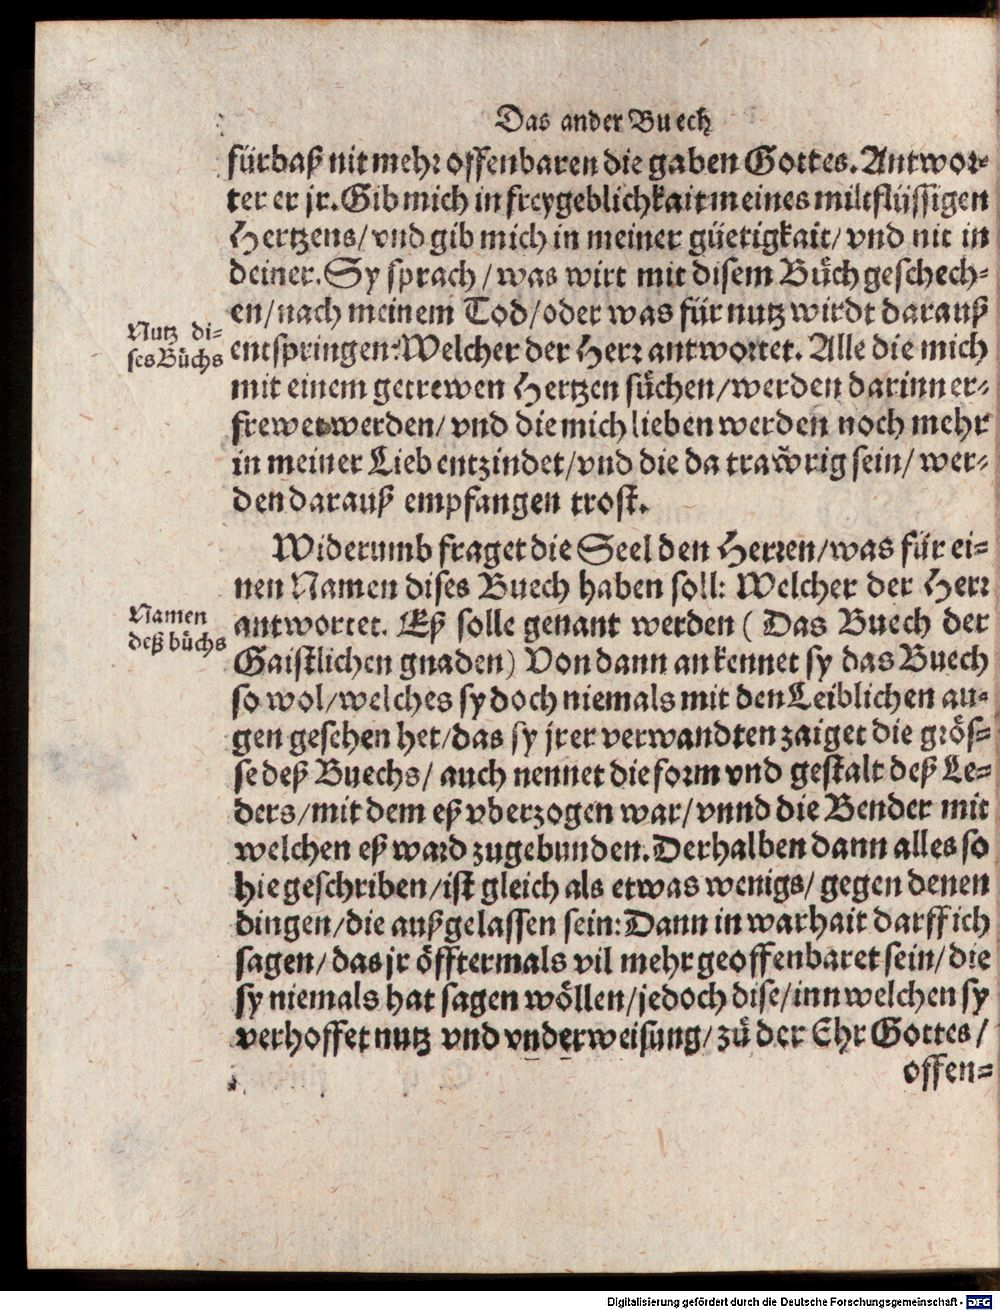 Das ander Buech
fürbaß nit mehr offenbaren die gaben Gottes. Antwor-
tet er jr. Gib mich in freygeblichkait meines miltflüssigen
Hertzens/ vnd gib mich in meiner güetigkait/ vnd nit in
deiner. Sy sprach/ was wirt mit disem Bůch geschech-
en/ nach meinem Tod/ oder was für nutz wirdt darauß
Nutz di-
ses Bůchs
entspringen: Welcher der Herr antwortet. Alle die mich
mit einem getrewen Hertzen sůchen/ werden darinn er-
frewet werden/ vnd die mich lieben werden noch mehr
in meiner Lieb entzindet/ vnd die da trawrig sein/ wer-
den darauß empfangen trost.
Widerumb fraget die Seel den Herren/ was für ei-
nen Namen dises Buech haben soll: Welcher der Herr
Namen
deß bůchs
antwortet. Eß solle genant werden (Das Buech der
Gaistlichen gnaden) Von dann an kennet sy das Buech
so wol/ welches sy doch niemals mit den Leiblichen au-
gen gesehen het/ das sy jrer verwandten zaiget die grös-
se deß Buechs/ auch nennet die form vnd gestalt deß Le-
ders/ mit dem eß vberzogen war/ vnnd die Bender mit
welchen eß ward zugebunden. Derhalben dann alles so
hie geschriben/ ist gleich als etwas wenigs/ gegen denen
dingen/ die außgelassen sein: Dann in warhait darff ich
sagen/ das jr öfftermals vil mehr geoffenbaret sein/ die
sy niemals hat sagen wöllen/ jedoch dise/ inn welchen sy
verhoffet nutz vnd vnderweisung/ zů der Ehr Gottes/
offen-
Digitalisierung gefördert durch die Deutsche Forschungsgemeinschaft - DFG